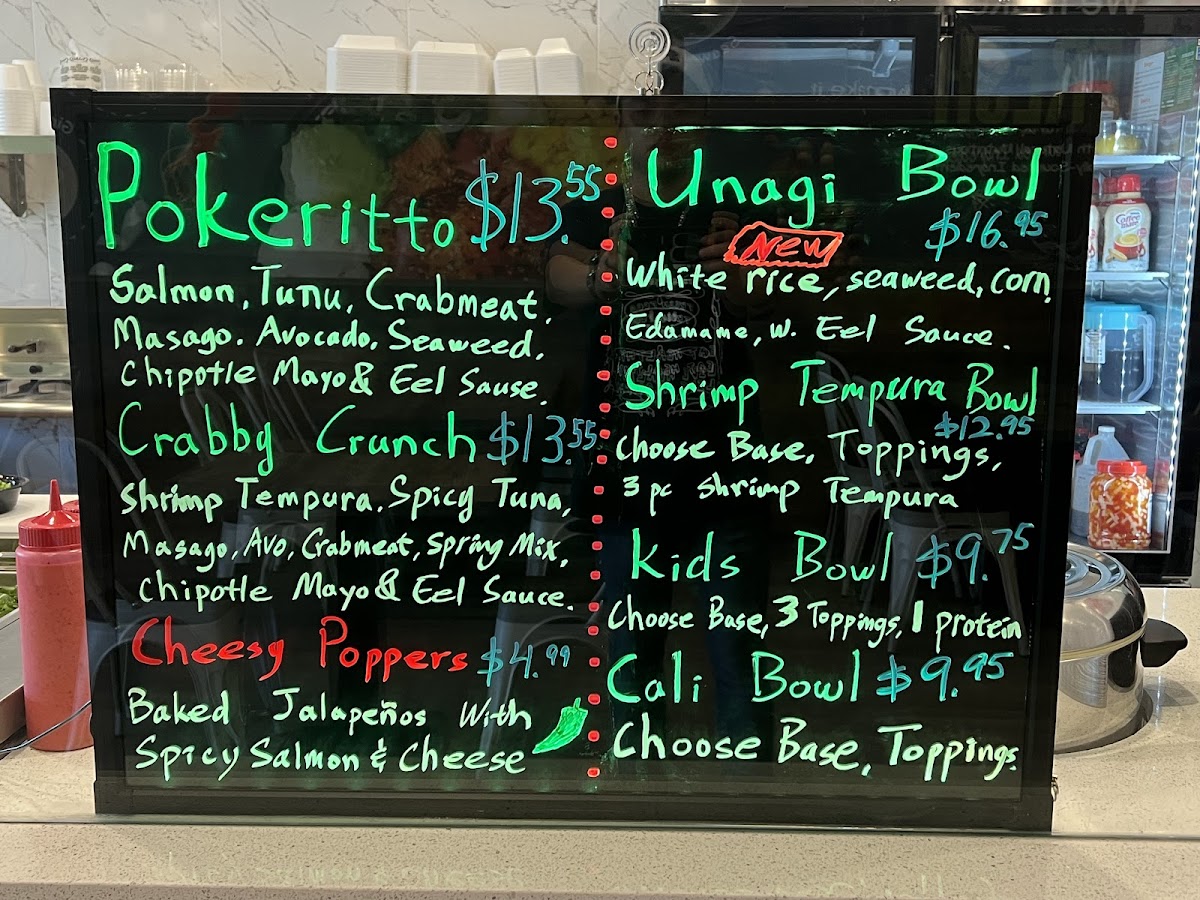 Pokeritto $13.55
Salmon, Tunu, Crabmeat,
Masago. Avocado. Seaweed,
Chipotle Mayo & Eel Sause.
Crabby Crunch $13.55
Shrimp Tempura. Spicy Tuna,
Masago, Avo, Crabmeat, Spring Mix,
Chipotle Mayo & Eel Sauce.
Cheesy Poppers $4.99
Baked Jalapeños With
Spicy Salmon & Cheese
Unagi Bowl
New $16.95
White rice, seaweed, corn,
Edamame, w. Eel Sauce.
Shrimp Tempura Bowl
$12.95
Choose Base, Toppings,
3 pc Shrimp Tempura
Kids Bowl $9.75
Choose Base, 3 Toppings, 1 protein
Cali Bowl $9.95
Choose Base, Toppings.